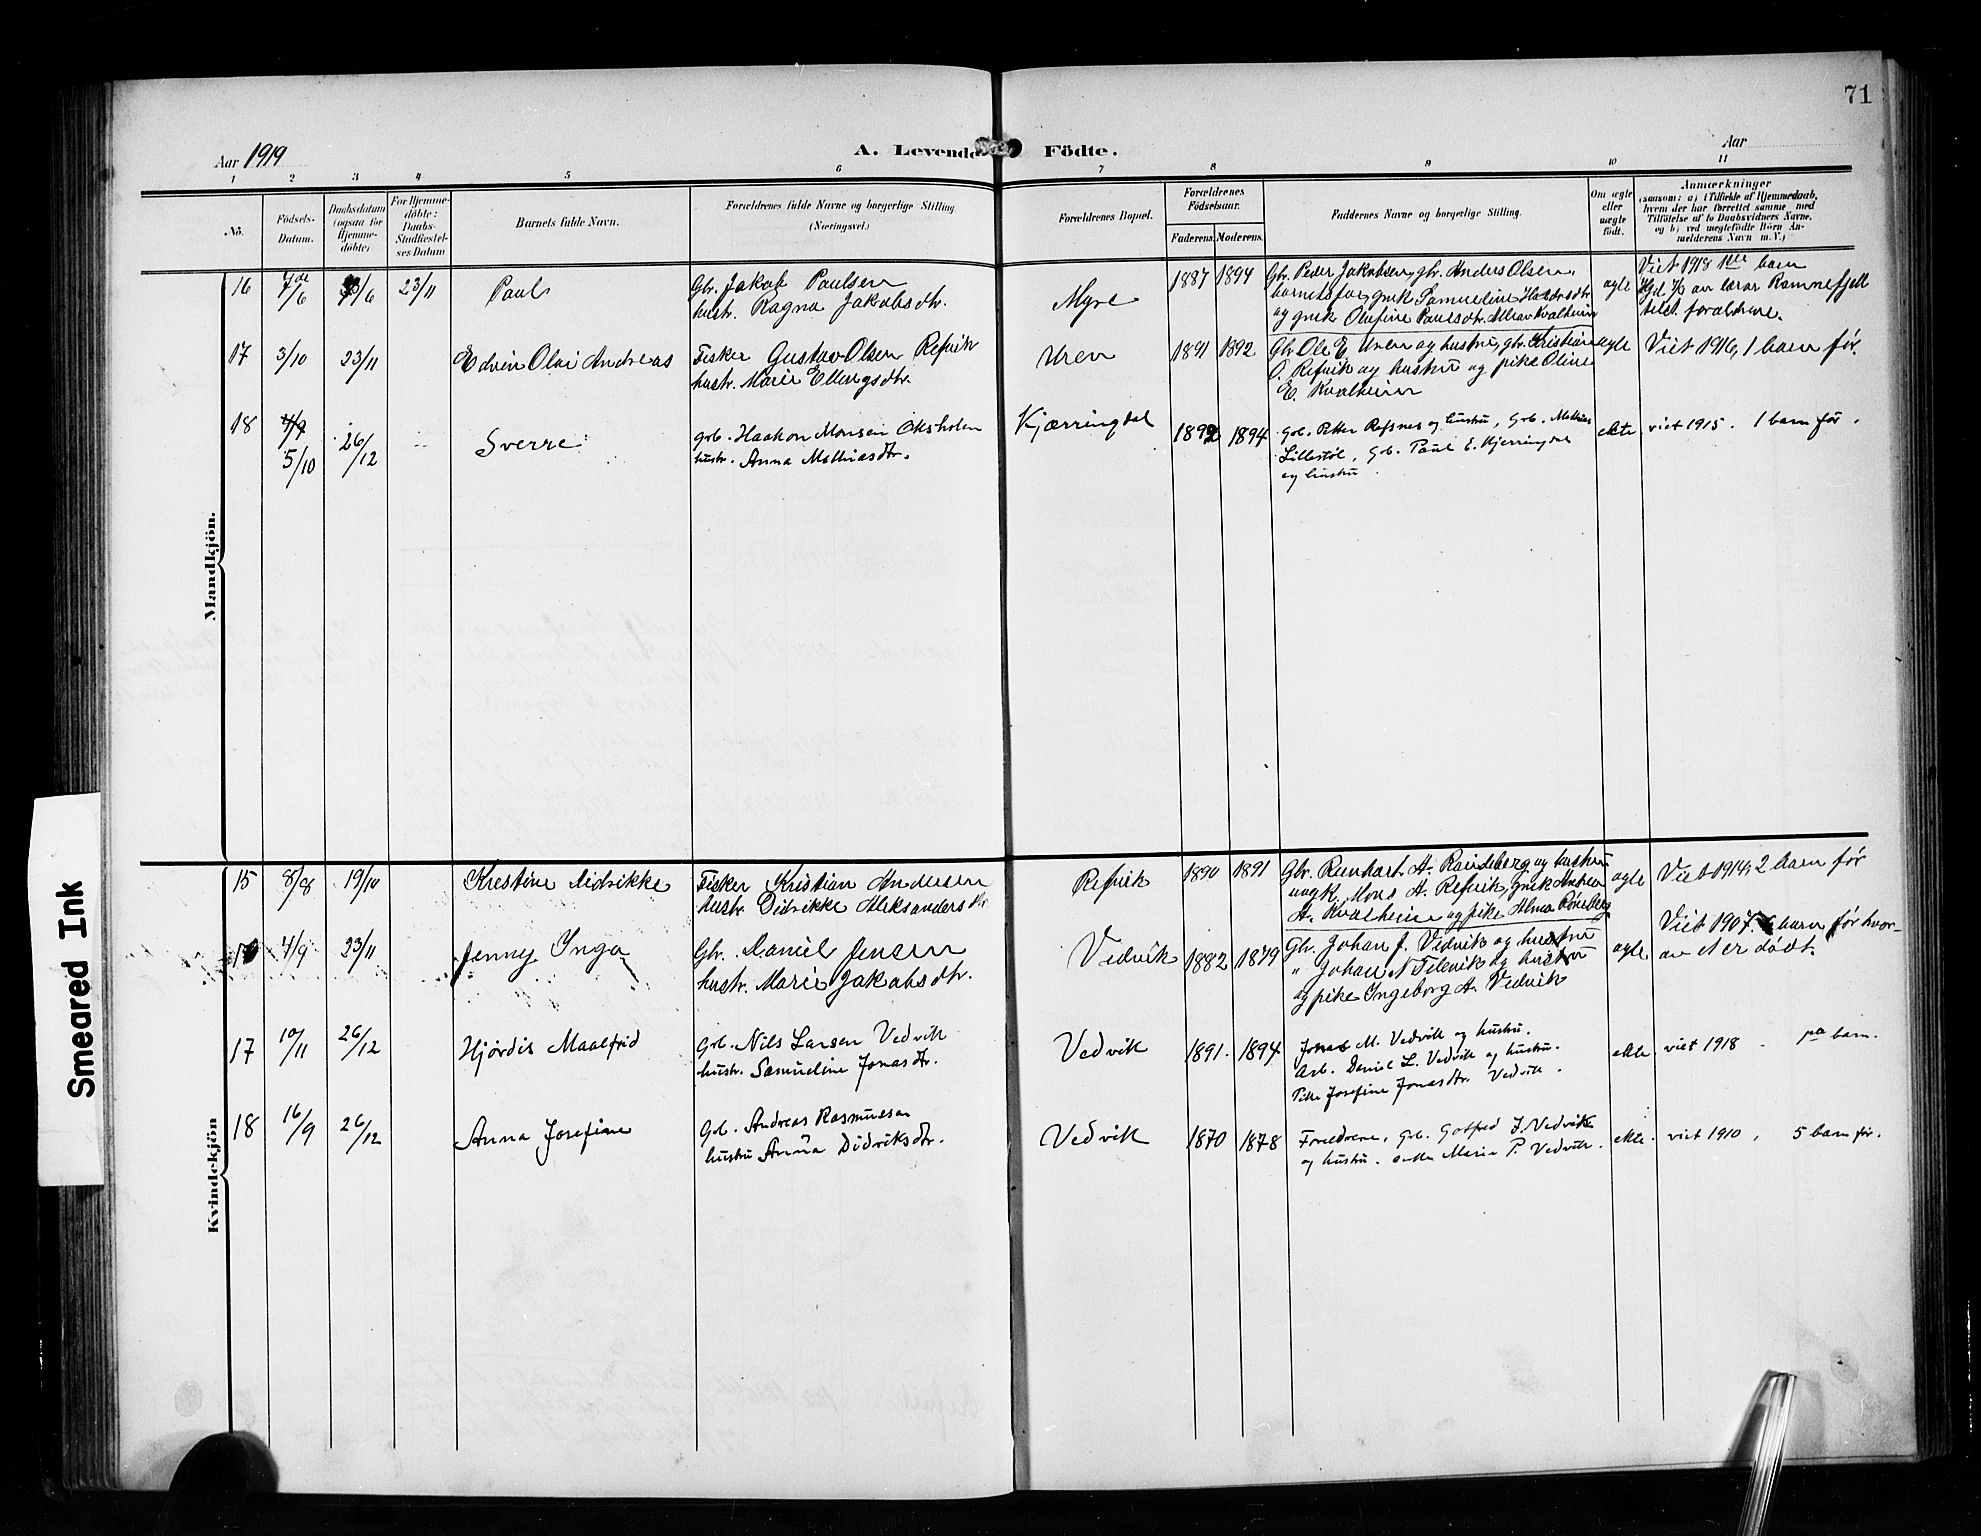 71
Aar 1919
A. Levende Födte.
Aar
1 2 3 4 5 6 7 8 9 10 11
No.
Födsels-
Datum.
Daabsdatum
(ogsaa for
Hjemme-
döbte)
For Hjemme-
döbte:
Daabs-
Stadfæstel-
ses Datum
Barnets fulde Navn.
Forældrenes fulde Navne og borgerlige Stilling
(Næringsvei.)
Forældrenes Bopæl.
Forældrenes
Födselsaar.
Faderens. Moderens.
Faddernes Navne og borgerlige Stilling.
Om ægte
eller
uægte
födt.
Anmærkninger
(saasom: a) i Tilfælde af Hjemmedaab,
hvem der har forrettet samme med
Tilföielse af to Daabsvidners Navne,
og b) ved uægtefödte Börn An-
melderens Navn m. V.)
Mandkjön.
16 7de/6 /6 23/11 Paul
Gbr. Jakob Paulsen
hustr. Ragna Jakobsdtr.
Myre 1887 1894
Gbr. Peder Jakobsen, gbr. Anders Olsen,
barnets far, gmk Samueline
og gmk Olufine Paulsdtr. Kvalheim
ægte
Viet 1918 1ste barn
Hjd av lærar Ramnefjell
tilst. foraldrene.
17 3/10 23/11 Edvin Olai Andreas
Fisker Gustav Olsen Refvik
hustr. Marie Ellingsdtr.
Uren 1891 1892
Gbr. Ole E. Uren og hustru, gbr. Kristian
O. Refvik og hustru og pike Oline
E. Kvalheim
ægte
Viet 1916, 1 barn før.
18 4/9
5/10 26/12 Sverre
grb. Haakon Monsen Oksholen
hustr. Anna Mathiasdtr.
Kjærringdal 1892 1894
Grb. Petter Refsnes og hustru, Grb. Mathias
Lillestøl, Grb. Paul E. Kjerringdal
og hustru
ekte. viet 1915. 1 barn før.
Kvindekjön
15 8/8 19/10 Kristine Didrikke
Fisker Kristian Andersen
hustr. Didrikke Aleksandersdtr.
Refvik 1890 1891
Gbr. Reinhart A. Raudeberg og hustru
ungk. Mons A. Refvik, gmk Andrea
A. Kvalheim og pike Alma
ægte
Viet 1914, 2 barn før
16 4/9 23/11 Jenny Inga
Gbr. Daniel Jensen
hustr. Marie Jakobsdtr.
Vedvik 1882 1879
Gbr. Johan J. Vedvik og hustru
" Johan N og hustru
og pike Ingeborg A. Vedvik
ægte
Viet 1907, barn før hvor-
av et er dödt.
17 10/11 26/12 Hjördis Maalfrid
Grb. Nils Larsen Vedvik
hustr. Samueline Jonasdtr.
Vedvik 1891. 1894
Jonas M. Vedvik og hustru.
Arb. Daniel L. Vedvik og hustru.
Pike Josefine Jonasdtr. Vedvik.
ekte. viet 1918 - 1ste barn.
18 16/9 26/12 Anna Josefine
Grb. Andreas Rasmussen
hustru Anna Didriksdtr.
Vedvik 1870 1878
Foreldrene, Grb. Gotfred J. Vedvik
og hustru. Marie P. Vedvik.
ekte. viet 1910, 5 barn før.
Smeared Ink